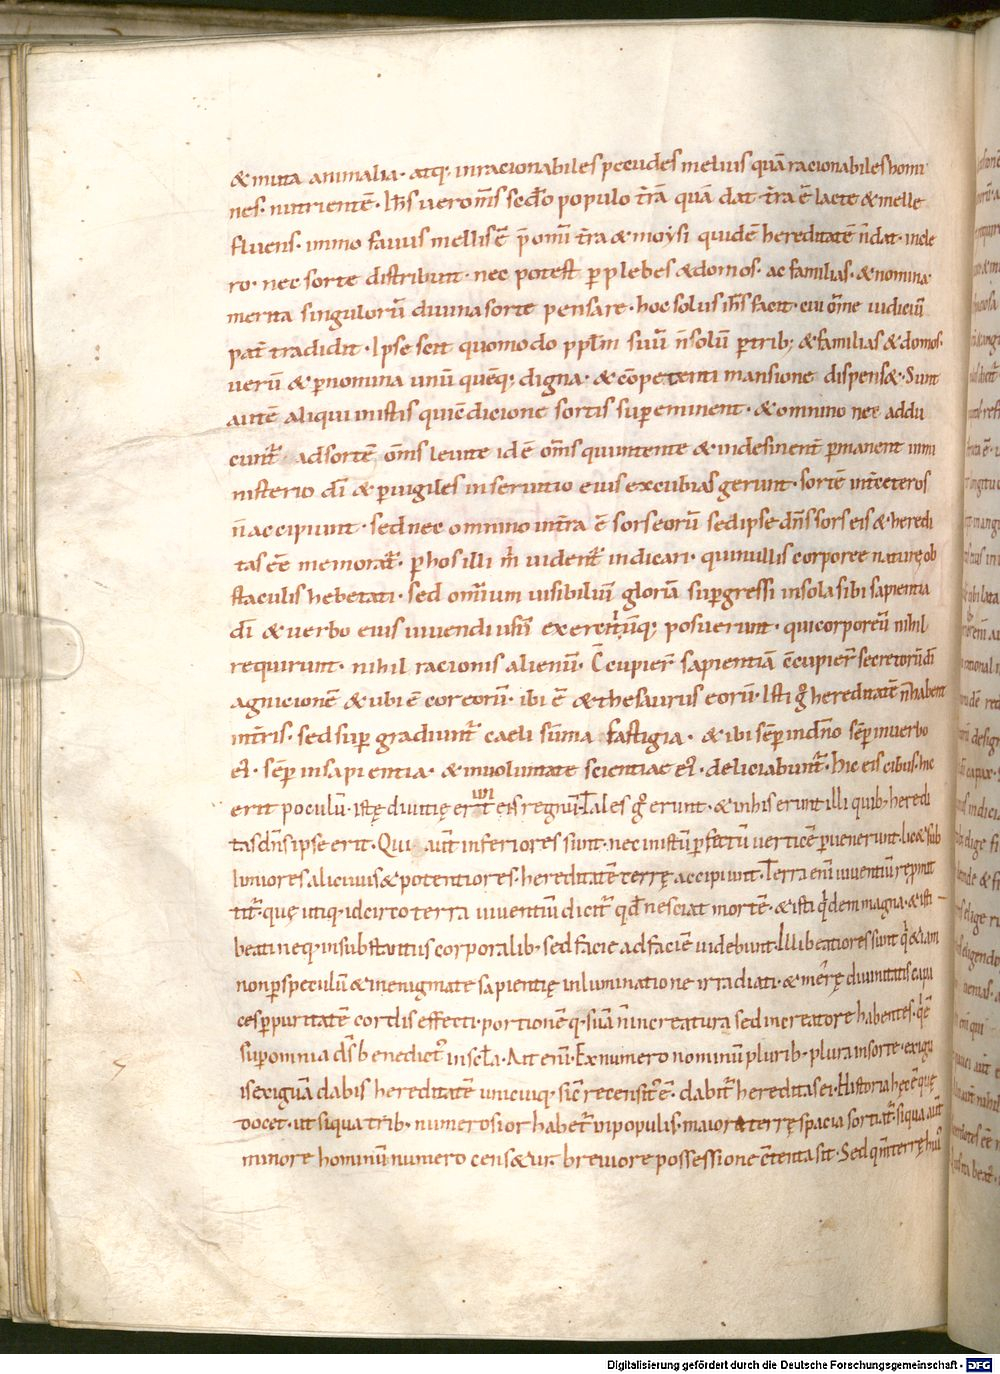 & muta animalia· atq· inracionabiles pecudes melius quā racionabiles homi
nes· nutrientē· Ih̄s vero m̄s sed̄o populo t̄rā quā dat· t̄ra ē lacte & melle
fluens· immo favus mellis ē p̄ omnī t̄ra & moysi quidē hereditatē n̄ dat· in cle
ro· nec sorte distribunt· nec potest per plebes & domos· ac familias· & nomina·
merita singulorū divina sorte pensare· hoc solus ih̄s facit· cui om̄e iudiciū
pat̄ tradidit· Ipse scit quomodo pplm̄ suū n̄ solū p tribꝫ & familias & domos·
verū & p nomina unū quēqꝫ digna· & cōpetenti mansione dispens&· Sunt
autē aliqui in istis qui cōdicione sortis supeminent· & omnino nec addu
cunt̄ ad sortē om̄s levite id ē om̄s qui intente & indesinent̄ pmanent in mi
nisterio dī & puigiles in servitio eius excubias gerunt· sortē int̄ ceteros
n̄ accipiunt· sed nec omnino int̄ra ē sors eorū sed ipse dn̄s sors eis & heredi
tas ēē memorat̄· p hos illi m̄ vident̄ indicari· qui nullis corporee naturę ob
staculis hebetati· sed omniū visibiliū gloriā supgressi in sola sibi sapientia
dī & verbo eius vivendi usū exercitiūqꝫ posuerunt· qui corporeū nihil
requirunt· nihil racionis alienū· C̄cupier̄ sapientiā c̄cupier̄ secretorū dī
agnicionē & ubi ē cor eorū· ibi ē & thesaurus eorū· Isti g̊ hereditatē n̄ habent
int̄ris· sed sup gradiunt̄ caeli sūma fastigia· & ibi semp̄ in dn̄o semp̄ in verbo
eiꝰ· semp̄ in sapientia· & in voluntate scientiae eiꝰ· deliciabunt̄· hic eis cibus· hic
erit poculū· istę divitię erit eis regnū· Tales g̊ erunt· & in his erunt illi quibꝫ heredi
tas dn̄s ipse erit· Qui aut̄ inferiores sunt· nec in istū pfectū verticē pvenerunt· lic& sub
limiores alicuius & potentiores· hereditatē terrę accipiunt· Terra enī viventiū repmit
tit̄· quę utiq· idcirco terra viventiū dicit̄ qd̄ nesciat mortē· & isti q̇dem magna· & isti
beati neq· in substantiis corporalib· sed facie ad faciē videbunt· Illi beatiores sunt q̇ & iam
non p speculū & in enigmate sapientię inluminatione irradiati· & merę divinitatis capa
ces p puritatē cordis effecti· portionē q· suā n̄ in creatura sed in creatore habentes· q̇ ē
sup omnia ds̄ benedictꝰ in sc̄la· Ait enī· Ex numero nominū plurib· plura in sorte· exigu
is exiguā dabis hereditatē unicuiq· sic̄ recensitꝰ ē· dabit̄ hereditas ei· Historia hęc ē quę
docet· ut siqua trib· numerosior habet̄ in populis· maiora terrę spacia sortiat̄· siqua aut̄
minore hominū numero cens&ur· breviore possessione c̄tenta sit· Sed qm̄ terrę huiꝰ